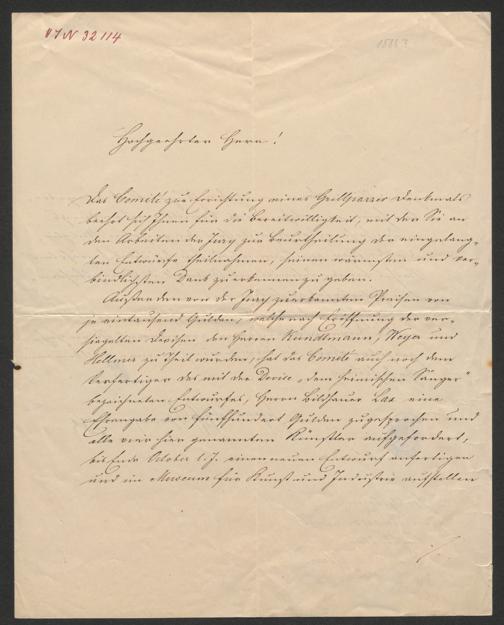 V7N 32114
Hochgeehrter Herr!
Das Comité zur Errichtung eines Grillparzer Denkmals
beehrt sich Ihnen für die Bereitwilligkeit, mit der Sie an
den Arbeiten der Jury zur Beurtheilung der eingelang-
ten Entwürfe theilnahmen, seinen wärmsten und ver-
bindlichsten Dank zu erkennen zu geben.
Außer den von der Jury zuerkannten Preisen von
je eintausend Gulden, welche nach Eröffnung der ver-
siegelten Devisen den Herren Kundtmann, Weyr und
Hellmer zu Theil wurden, hat das Comité auch noch dem
Verfertiger des mit der Devise „dem heimischen Sänger"
bezeichneten Entwurfes, Herrn Bildhauer Lax eine
Ehrengabe von fünfhundert Gulden zugesprochen und
alle vier hier genannten Künstler aufgefordert,
bis Ende October l. J. einen neuen Entwurf anfertigen
und im Museum für Kunst und Industrie aufstellen